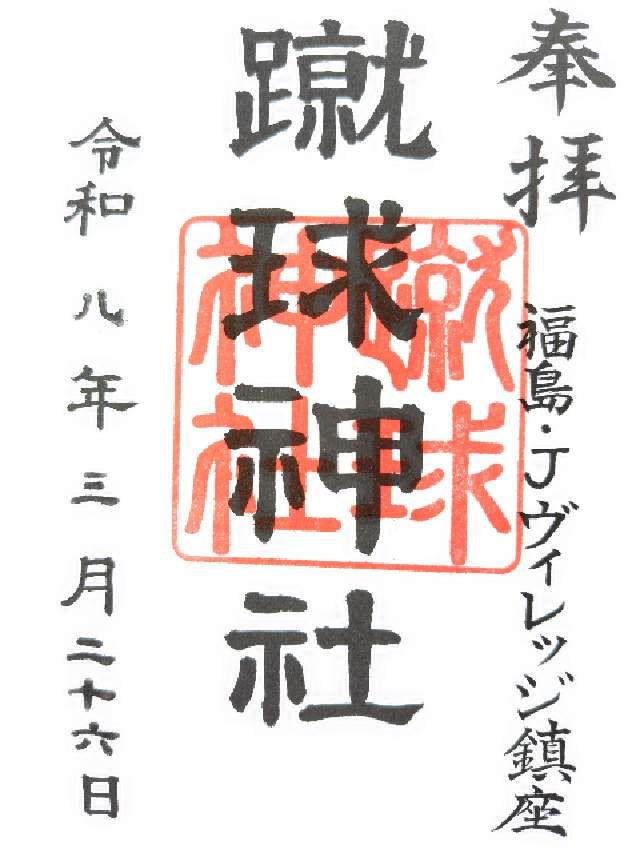 奉拝
福島・Jヴィレッジ鎮座
蹴球神社
蹴球
神社
令和八年三月二十六日